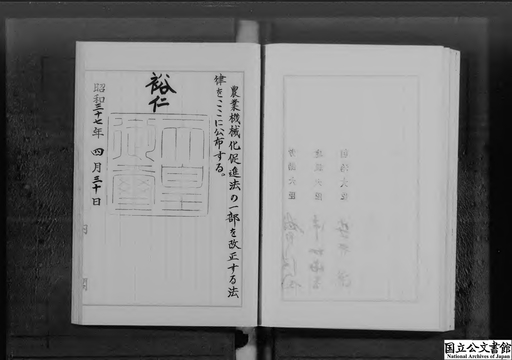 農業機械化促進法の一部を改正する法
律をここに公布する。
裕仁
天皇
御璽
昭和三十七年 四月三十日
国立公文書館
National Archives of Japan